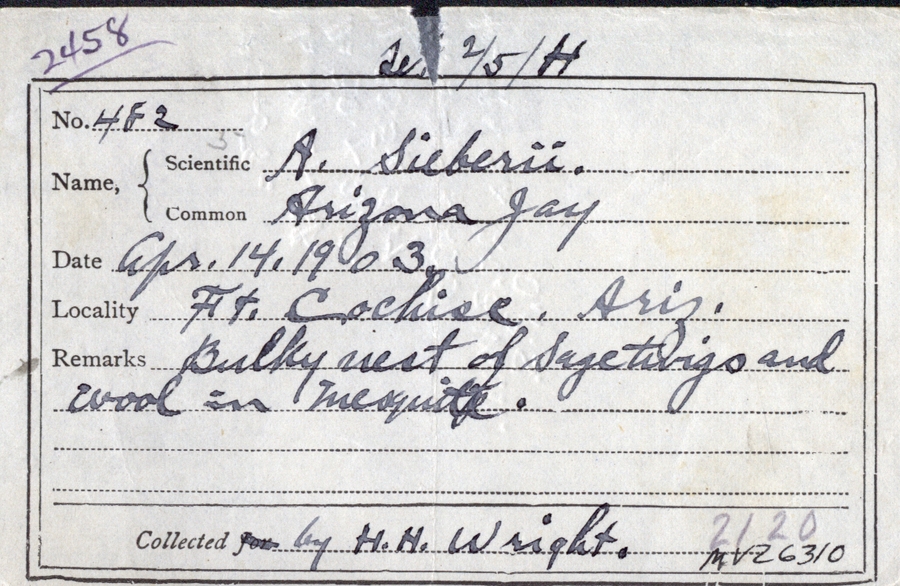 2458
Set 2/5/H
No. 482
Name,
Scientific A. Sieberii.
Common Arizona Jay
Date Apr. 14. 1903.
Locality Ft. Cochise. Ariz.
Remarks Bulky nest of Sagetwigs and
wool in Mesquite.
Collected for by H.H. Wright.
2120
MVZ 6310